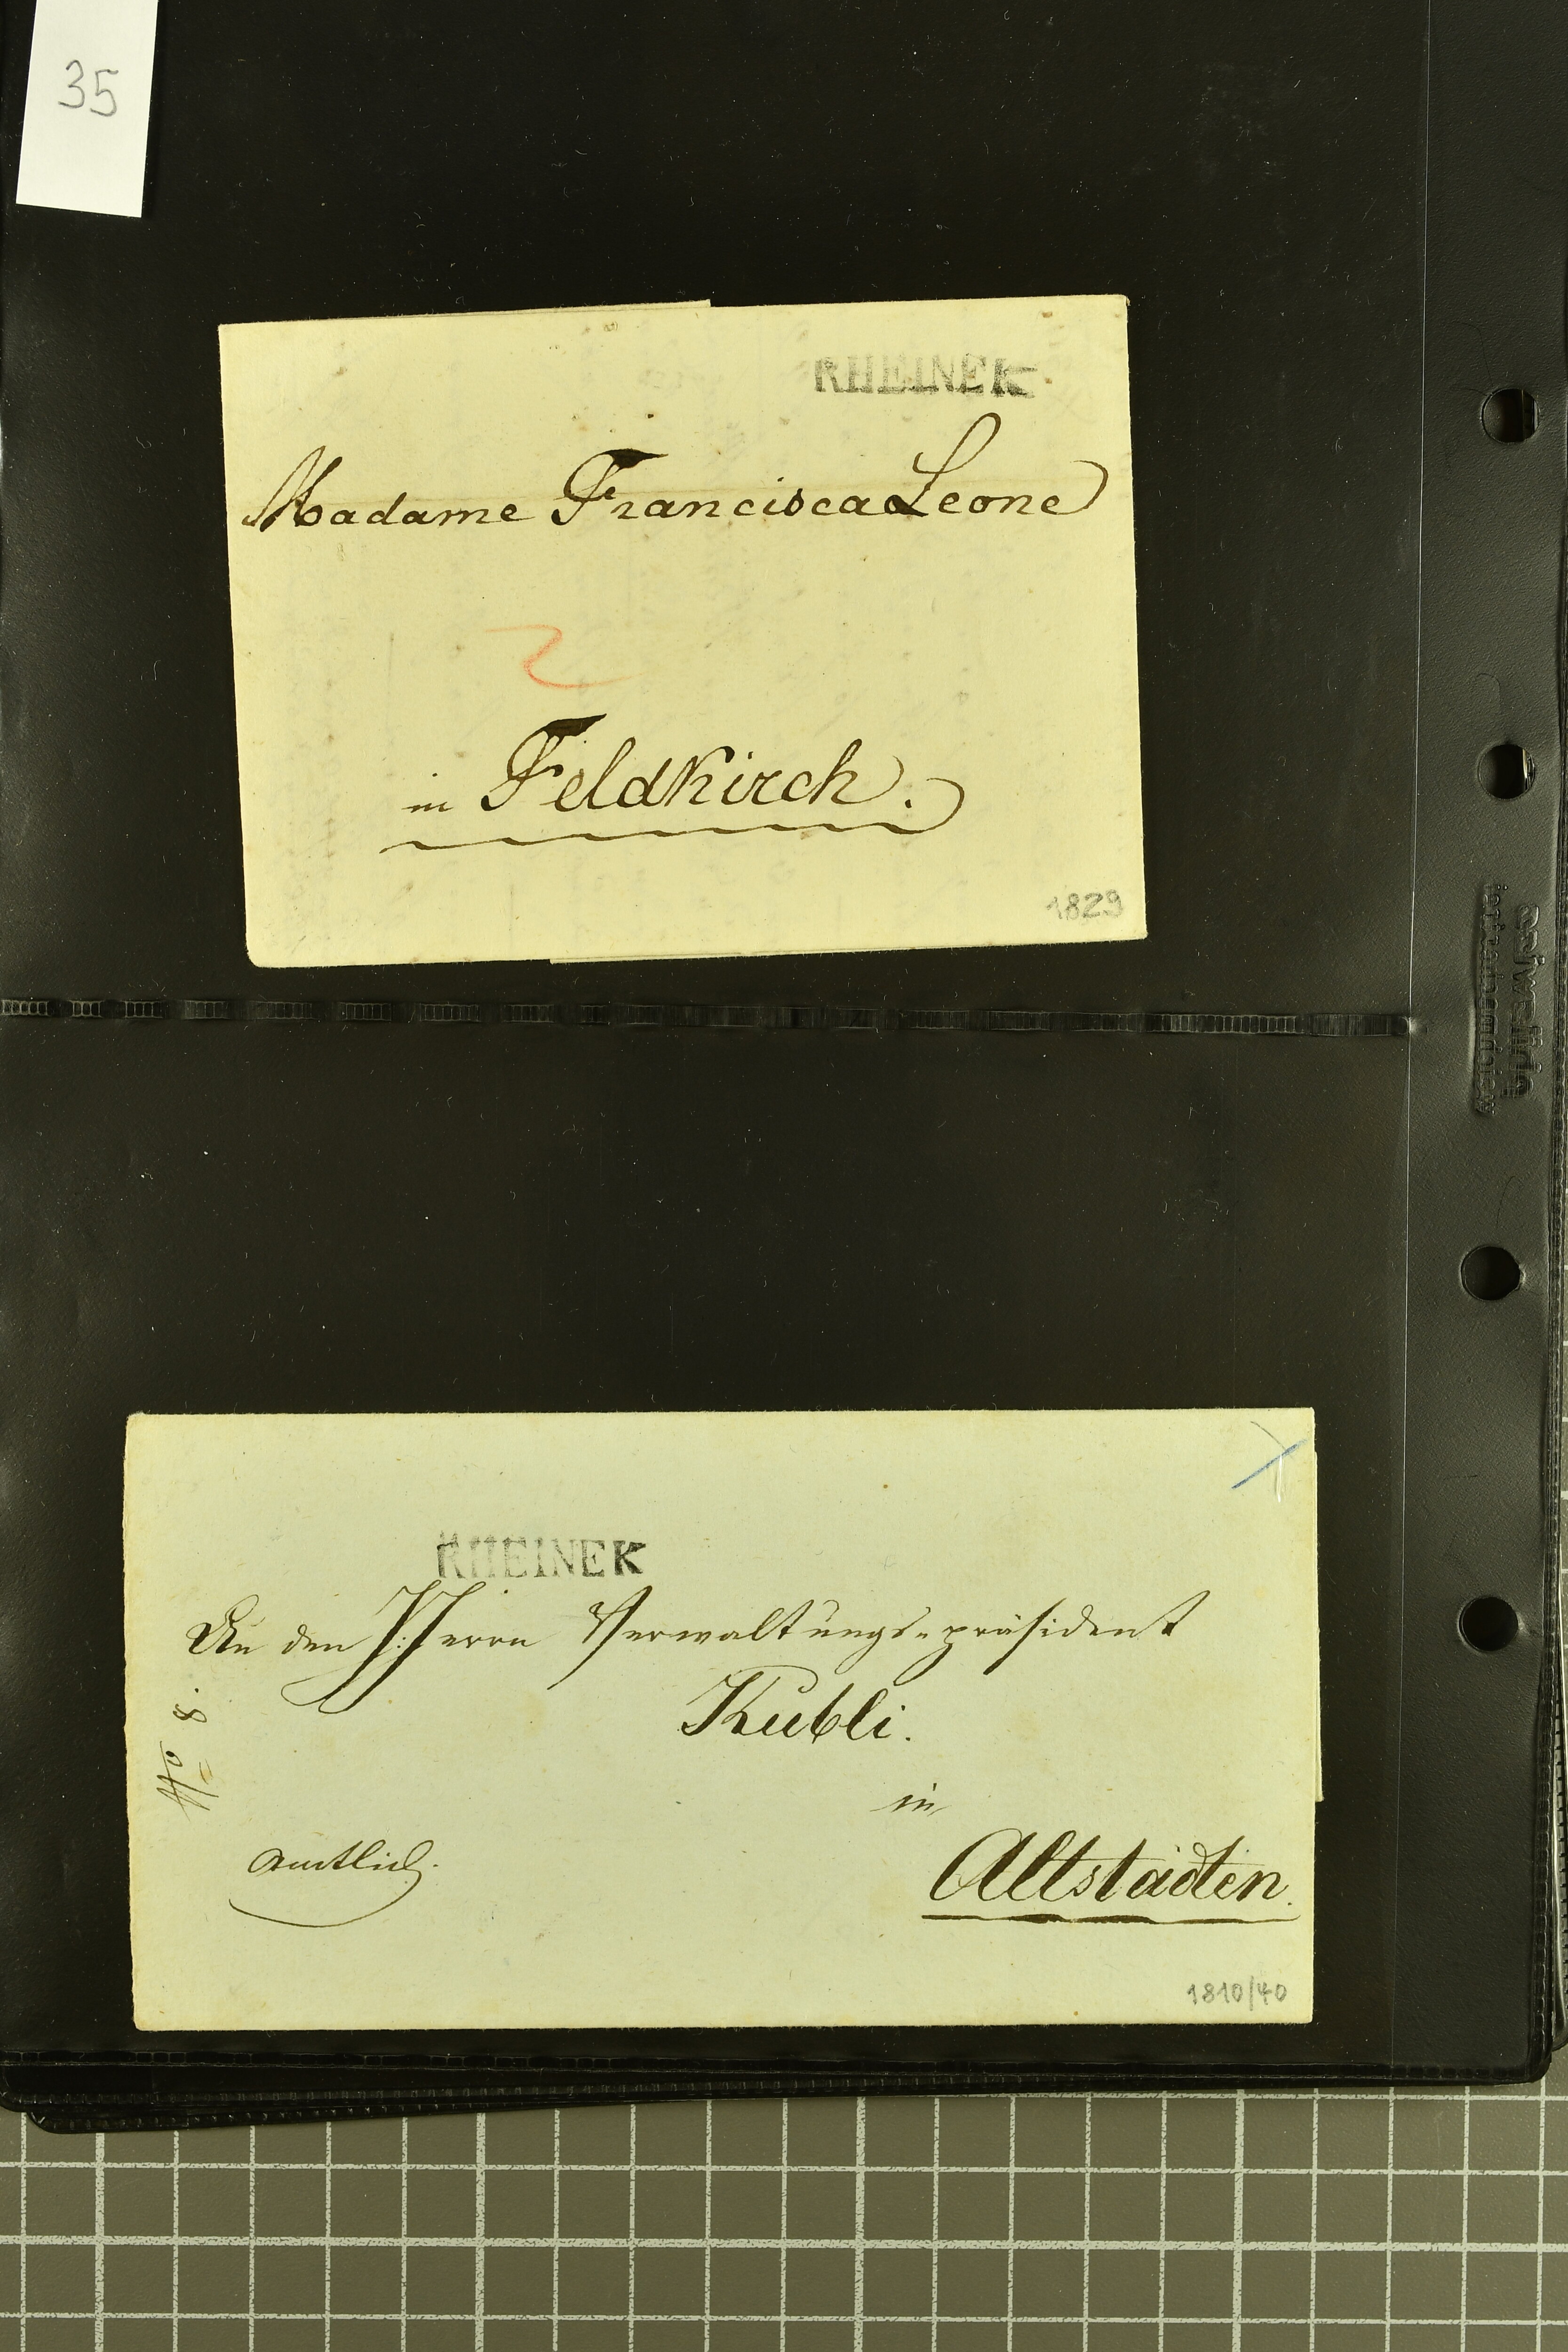 35
RHEINEK
Madame Francisca Leone
2
in Feldkirch.
1829
RHEINEK
An den Herrn Verwaltungs-präsident
Kubli.
No 8.
in
amtlich.
Altstädten.
1810/40